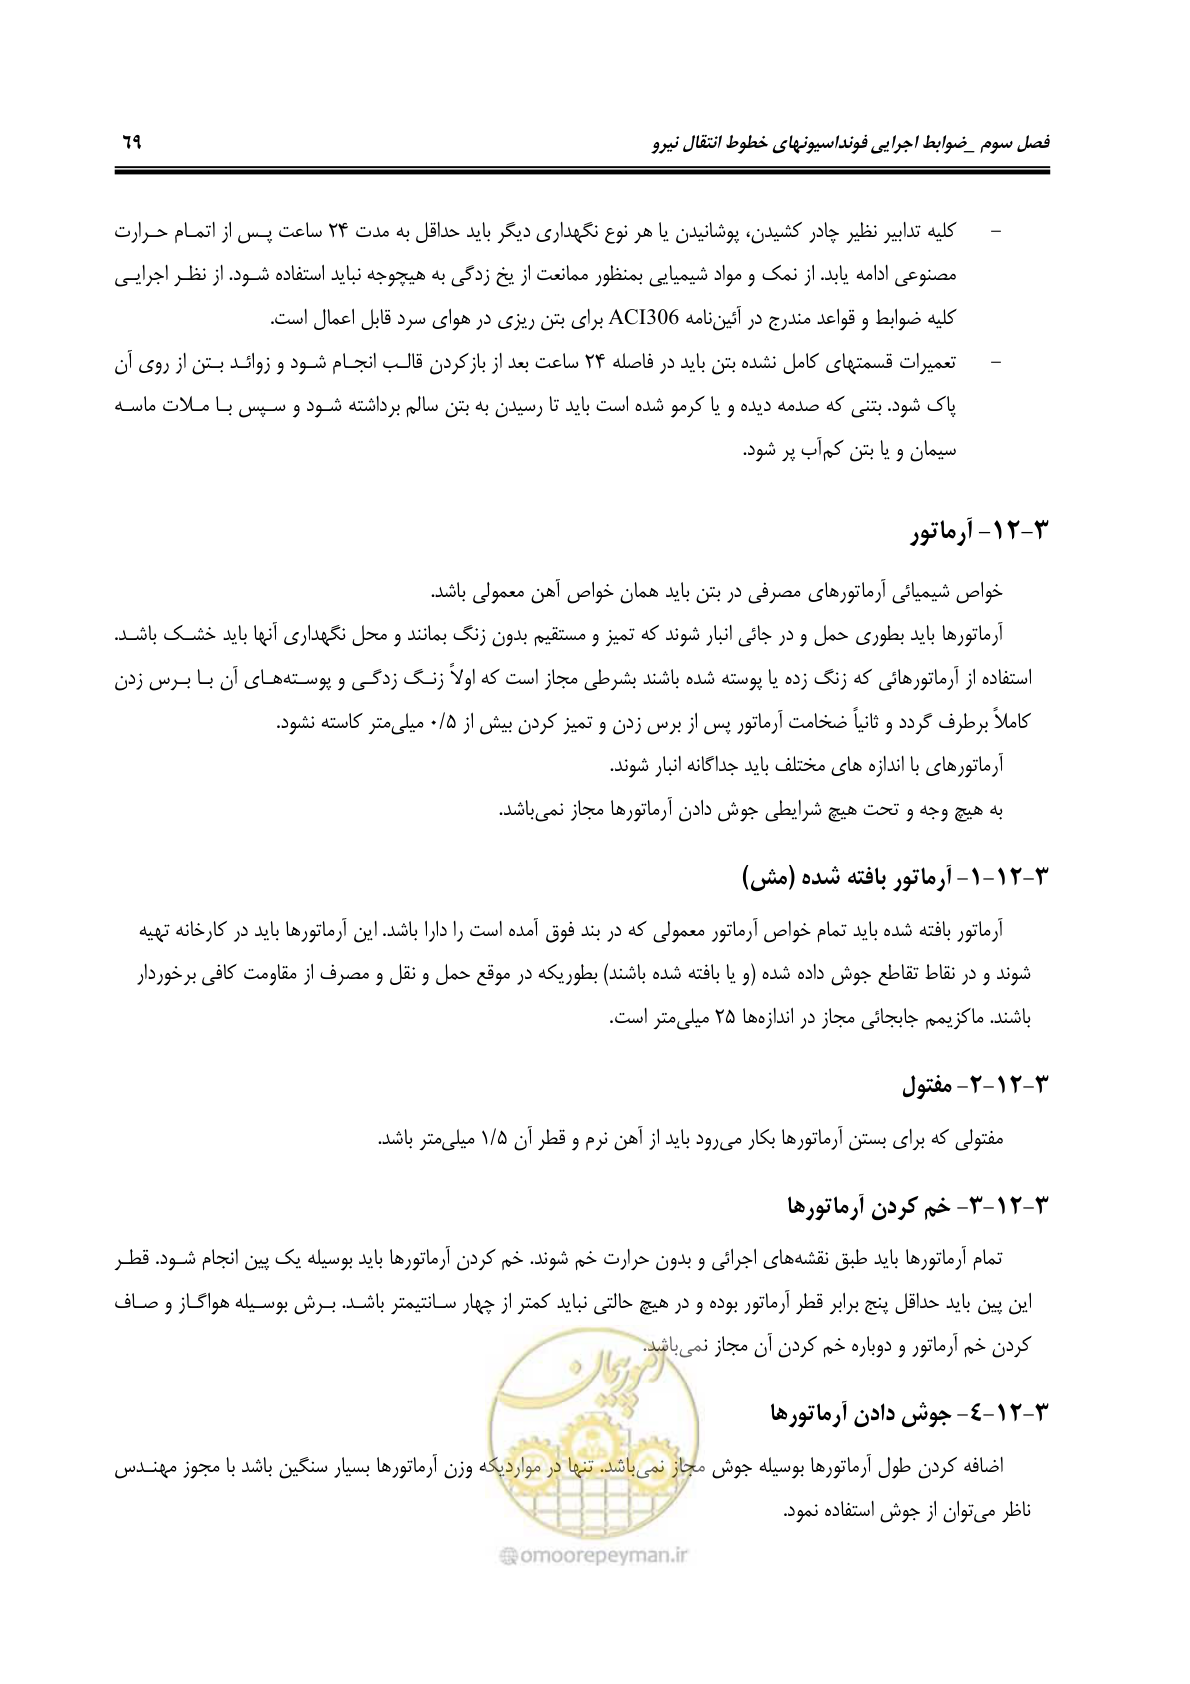 فصل سوم _ضوابط اجرایی فونداسیونهای خطوط انتقال نیرو ۶۹
– کلیه تدابیر نظیر چادر کشیدن، پوشانیدن یا هر نوع نگهداری دیگر باید حداقل به مدت ۲۴ ساعت پس از اتمام حرارت
مصنوعی ادامه یابد. از نمک و مواد شیمیایی بمنظور ممانعت از یخ زدگی به هیچوجه نباید استفاده شود. از نظر اجرایی
کلیه ضوابط و قواعد مندرج در آئین‌نامه ACI306 برای بتن ریزی در هوای سرد قابل اعمال است.
– تعمیرات قسمتهای کامل نشده بتن باید در فاصله ۲۴ ساعت بعد از بازکردن قالب انجام شود و زوائد بتن از روی آن
پاک شود. بتنی که صدمه دیده و یا کرمو شده است باید تا رسیدن به بتن سالم برداشته شود و سپس با ملات ماسه
سیمان و یا بتن کم‌آب پر شود.
۳-۱۲- آرماتور
خواص شیمیائی آرماتورهای مصرفی در بتن باید همان خواص آهن معمولی باشد.
آرماتورها باید بطوری حمل و در جائی انبار شوند که تمیز و مستقیم بدون زنگ بمانند و محل نگهداری آنها باید خشک باشد.
استفاده از آرماتورهائی که زنگ زده یا پوسته شده باشند بشرطی مجاز است که اولاً زنگ زدگی و پوسته‌های آن با برس زدن
کاملاً برطرف گردد و ثانیاً ضخامت آرماتور پس از برس زدن و تمیز کردن بیش از ۰/۵ میلی‌متر کاسته نشود.
آرماتورهای با اندازه های مختلف باید جداگانه انبار شوند.
به هیچ وجه و تحت هیچ شرایطی جوش دادن آرماتورها مجاز نمی‌باشد.
۳-۱۲-۱- آرماتور بافته شده (مش)
آرماتور بافته شده باید تمام خواص آرماتور معمولی که در بند فوق آمده است را دارا باشد. این آرماتورها باید در کارخانه تهیه
شوند و در نقاط تقاطع جوش داده شده (و یا بافته شده باشند) بطوریکه در موقع حمل و نقل و مصرف از مقاومت کافی برخوردار
باشند. ماکزیمم جابجائی مجاز در اندازه‌ها ۲۵ میلی‌متر است.
۳-۱۲-۲- مفتول
مفتولی که برای بستن آرماتورها بکار می‌رود باید از آهن نرم و قطر آن ۱/۵ میلی‌متر باشد.
۳-۱۲-۳- خم کردن آرماتورها
تمام آرماتورها باید طبق نقشه‌های اجرائی و بدون حرارت خم شوند. خم کردن آرماتورها باید بوسیله یک پین انجام شود. قطر
این پین باید حداقل پنج برابر قطر آرماتور بوده و در هیچ حالتی نباید کمتر از چهار سانتیمتر باشد. برش بوسیله هواگاز و صاف
کردن خم آرماتور و دوباره خم کردن آن مجاز نمی‌باشد.
امور پیمان
۳-۱۲-٤- جوش دادن آرماتورها
اضافه کردن طول آرماتورها بوسیله جوش مجاز نمی‌باشد. تنها در مواردیکه وزن آرماتورها بسیار سنگین باشد با مجوز مهندس
ناظر می‌توان از جوش استفاده نمود.
@omoorepeyman.ir